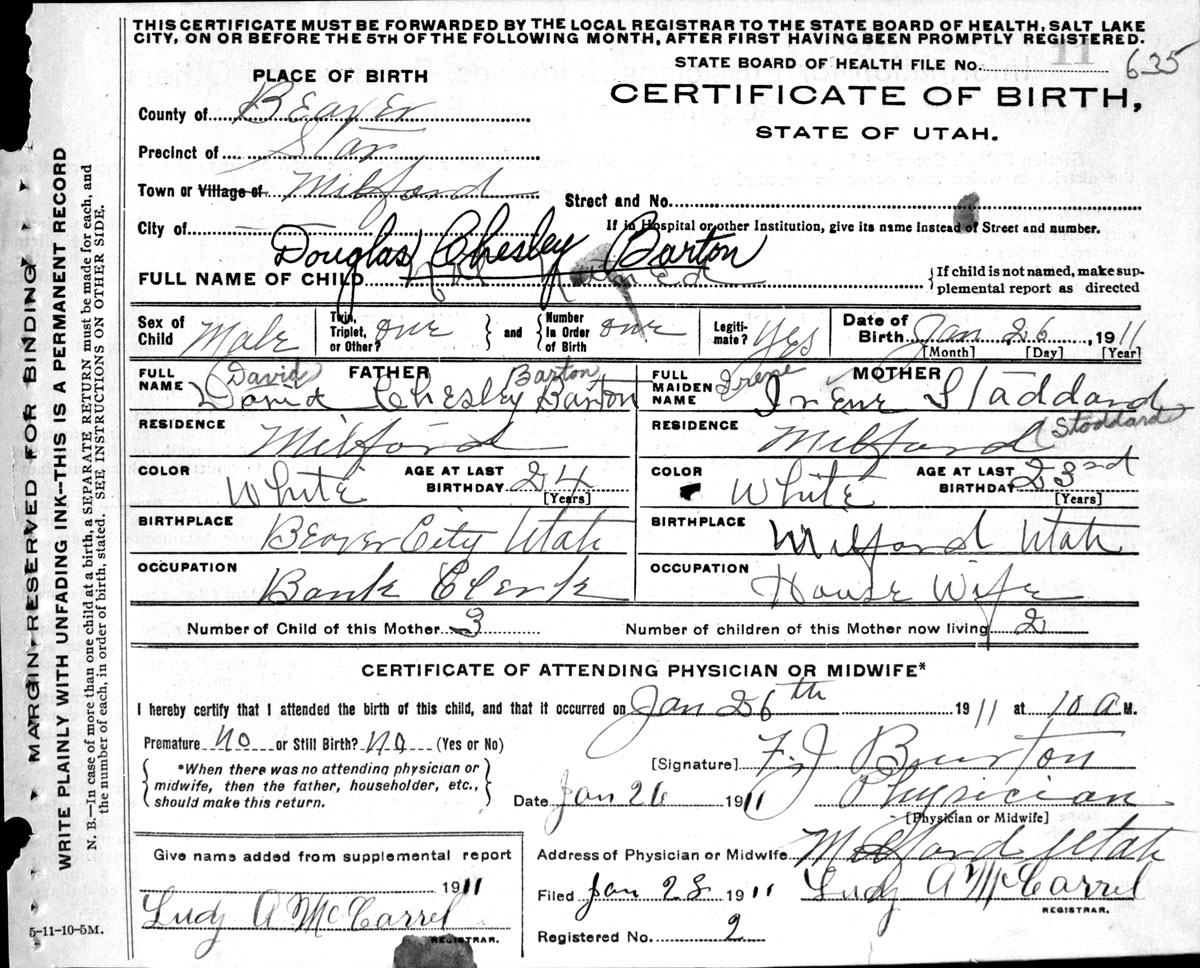 THIS CERTIFICATE MUST BE FORWARDED BY THE LOCAL REGISTRAR TO THE STATE BOARD OF HEALTH, SALT LAKE
CITY, ON OR BEFORE THE 5TH OF THE FOLLOWING MONTH, AFTER FIRST HAVING BEEN PROMPTLY REGISTERED.
STATE BOARD OF HEALTH FILE No. 11 635
PLACE OF BIRTH
CERTIFICATE OF BIRTH,
STATE OF UTAH.
County of Beaver
Precinct of Star
Town or Village of Milford
Street and No.
City of
If in Hospital or other Institution, give its name instead of Street and number.
Douglas Chesley Barton
FULL NAME OF CHILD Not Named
{If child is not named, make sup-
plemental report as directed
Sex of Child Male
Twin, Triplet, or Other? one } and { Number In Order of Birth one
Legiti-mate? Yes
Date of Birth Jan 26, 1911
[Month] [Day] [Year]
FULL NAME FATHER
David Barton
David Chesley Barton
RESIDENCE Milford
COLOR White AGE AT LAST BIRTHDAY 24
[Years]
BIRTHPLACE Beaver City Utah
OCCUPATION Bank Clerk
FULL MAIDEN NAME MOTHER
Irene
Irene Staddard
(Stoddard
RESIDENCE Milford
COLOR White AGE AT LAST BIRTHDAY 23rd
[Years]
BIRTHPLACE Milford Utah
OCCUPATION House Wife
Number of Child of this Mother 3 Number of children of this Mother now living 2
CERTIFICATE OF ATTENDING PHYSICIAN OR MIDWIFE*
I hereby certify that I attended the birth of this child, and that it occurred on Jan 26th 1911 at 10 A M.
Premature No or Still Birth? No (Yes or No)
{ *When there was no attending physician or
midwife, then the father, householder, etc.,
should make this return. }
[Signature] F. J. Burton
Date Jan 26 1911 Physician
[Physician or Midwife]
Give name added from supplemental report
1911
Ludz A McCarrel
REGISTRAR.
Address of Physician or Midwife Milford Utah
Filed Jan 28 1911 Ludz A McCarrel
REGISTRAR.
Registered No. 2
5-11-10-5M.
MARGIN RESERVED FOR BINDING
WRITE PLAINLY WITH UNFADING INK--THIS IS A PERMANENT RECORD
N. B.—In case of more than one child at a birth, a SEPARATE RETURN must be made for each, and
the number of each, in order of birth, stated. SEE INSTRUCTIONS ON OTHER SIDE.